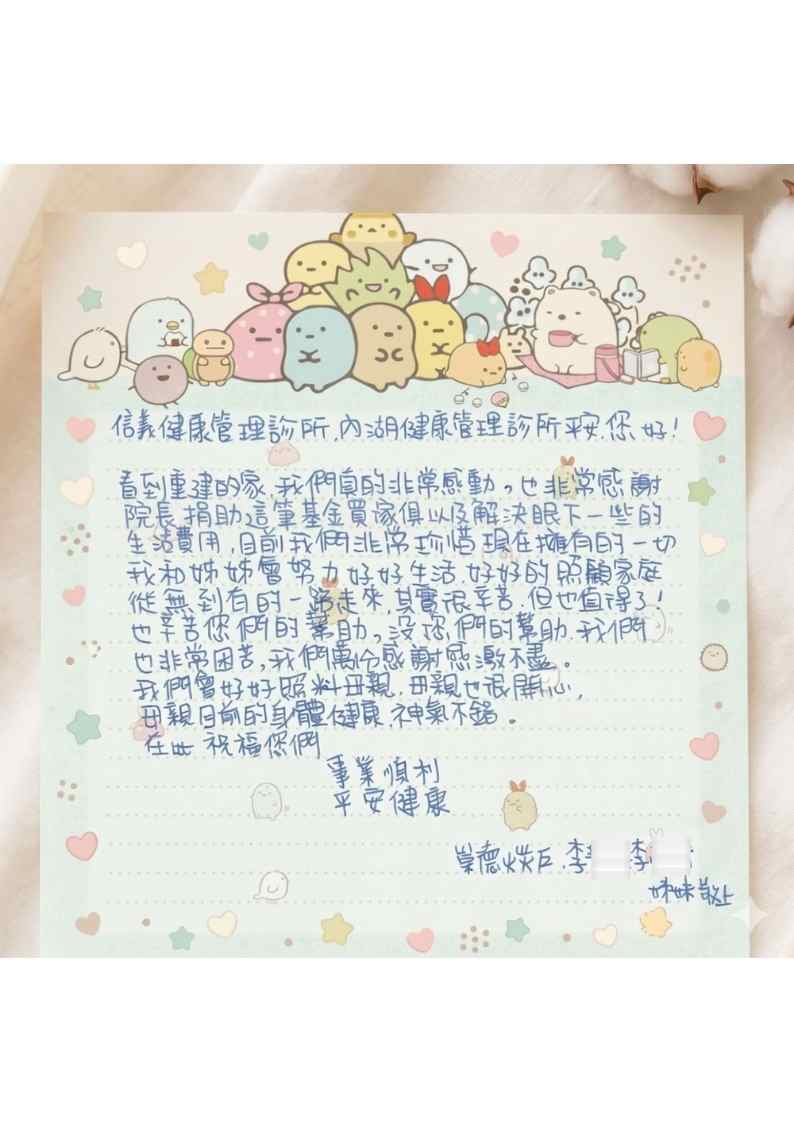 信義健康管理診所,內湖健康管理診所平安.您好!
看到重建的家,我們真的非常感動。也非常感謝
院長捐助這筆基金買家俱以及解決眼下一些的
生活費用,目前我們非常珍惜現在擁有的一切
我和姊姊會努力好好生活.好好的照顧家庭
從無到有的一路走來,其實很辛苦.但也值得了!
也辛苦您們的幫助。沒您們的幫助.我們
也非常困苦,我們萬份感謝感激不盡。
我們會好好照料母親.母親也很開心,
母親目前的身體健康.神氣不錯。
在此 祝福您們
事業順利
平安健康
崇德災戶.李 李
姊妹敬上